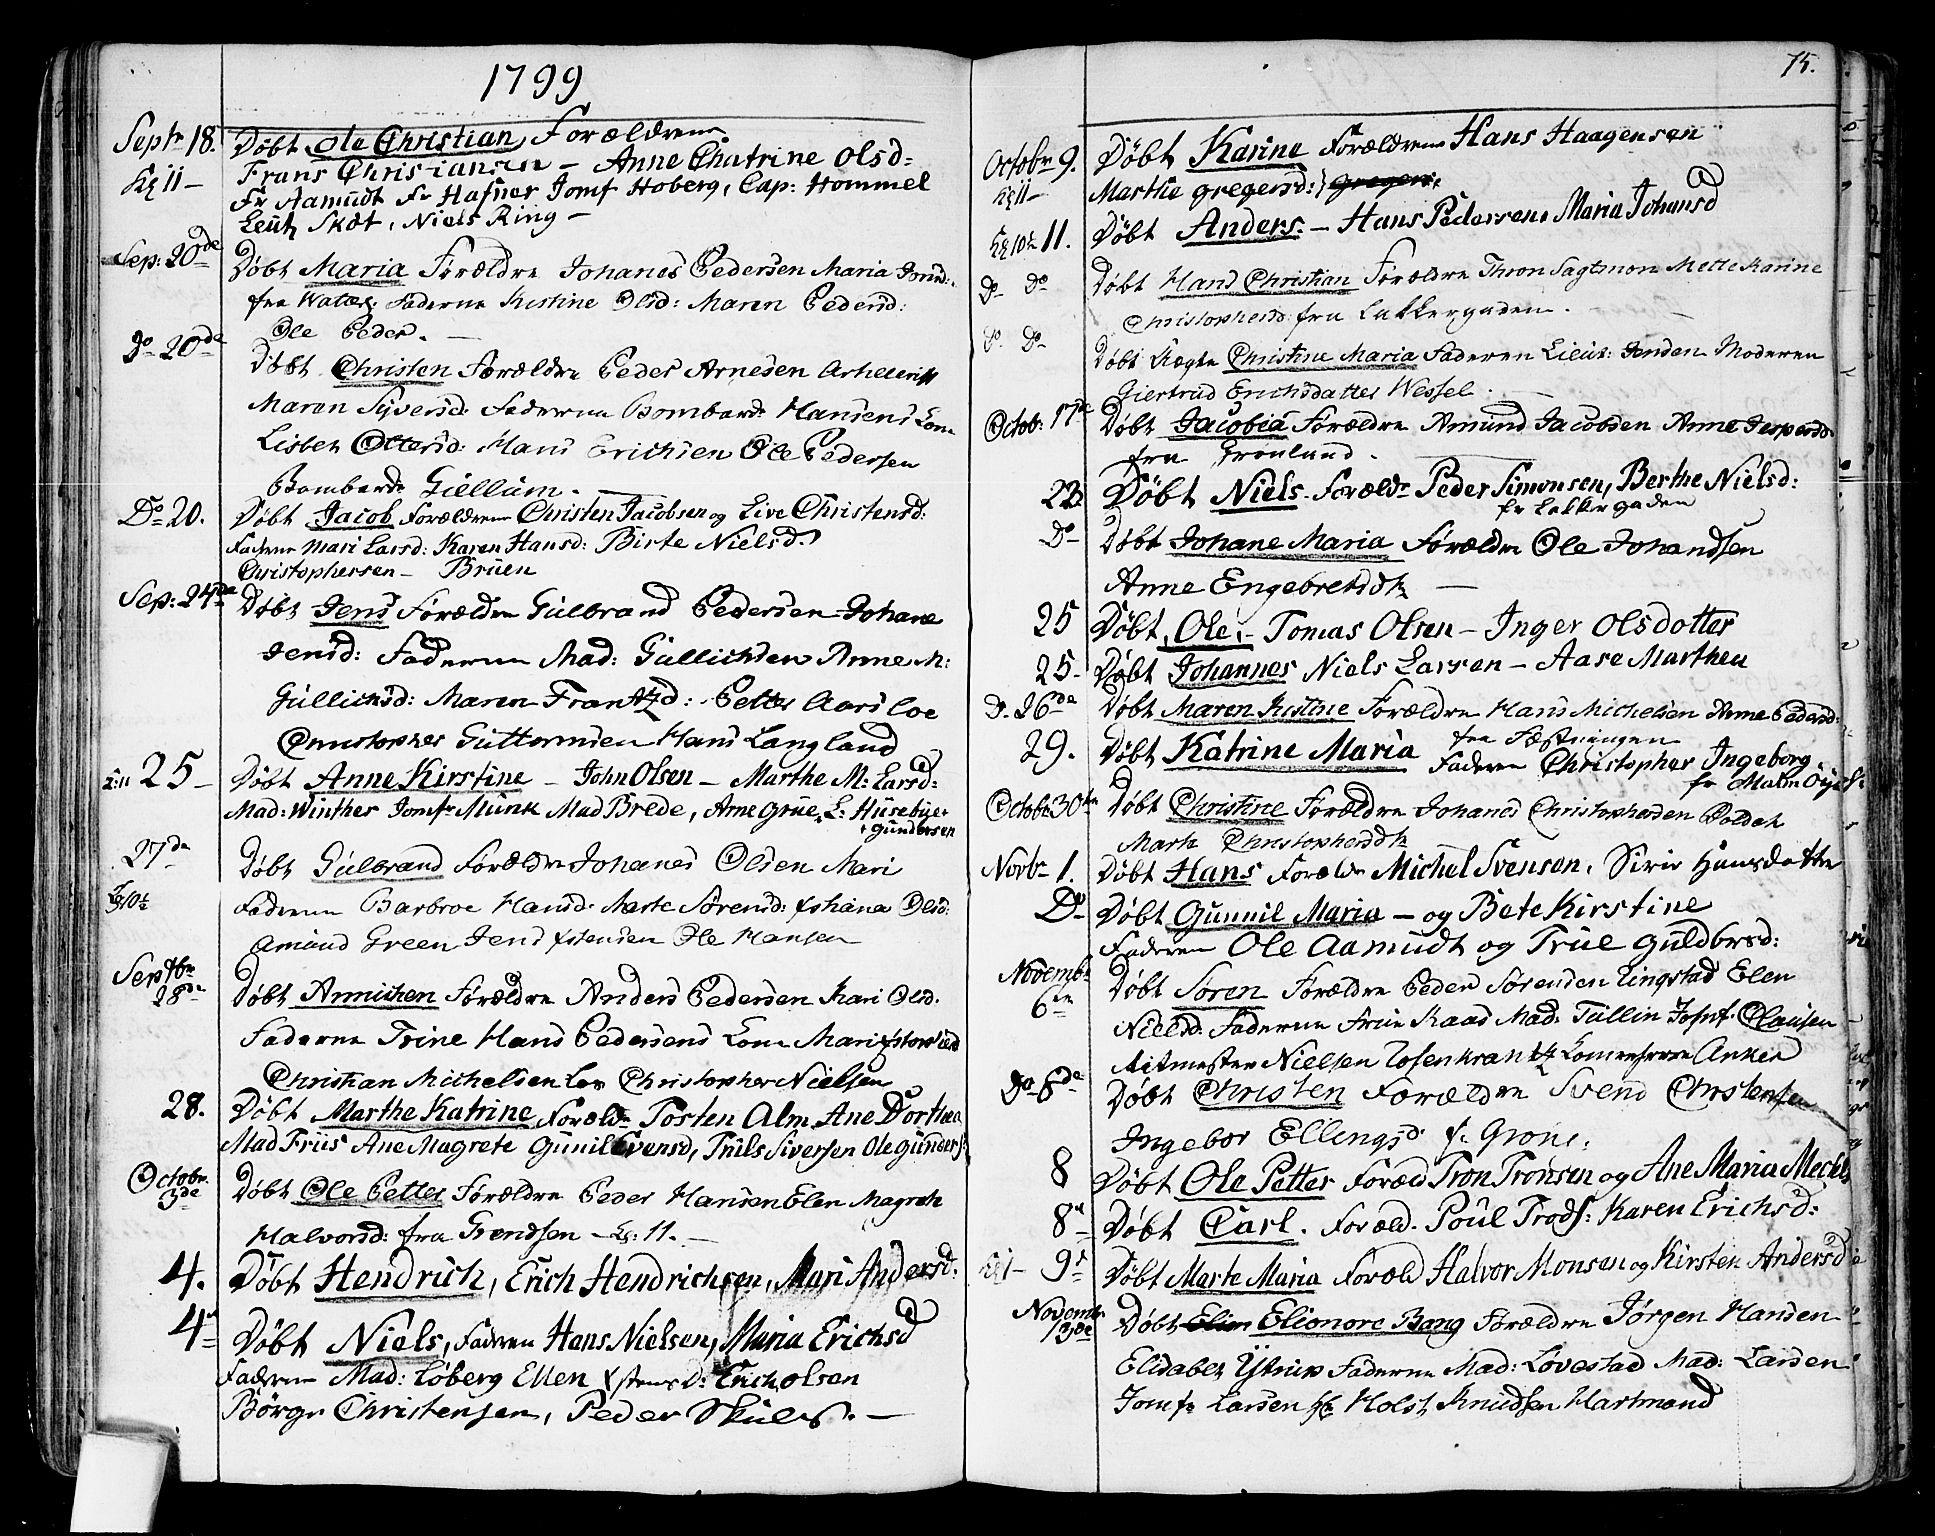 1799
Septr 18. Døbt Ole Christian Forældrene
Kl 11 – Frans Christiansen – Anne Chatrine Olsd=
Fr Aamudt Fr Hafner Jomf Hoberg, Cap: Hommel
Leut Skæt, Niels Ring –
Sep: 20de Døbt Maria Forældre Johanes Pedersen Maria
fra Faderne Kistine Olsd: Maren Pedersd:
Ole Peder. –
Do 20de Døbt Christen Forældre Peder Arnesen
Maren Syversd: Faderne Bombard: Hansens Kone
Lisbet Ottersd: Hans Erichsen Ole Pedersen
Bombard: Giellum. –
Do 20. Døbt Jacob Forældrene Christen Jacobsen og Live Christensd:
Faderne Mari Larsd: Karen Hansd: Birte Nielsd.
Christophersen – Bruen
Sep: 24de Døbt Jens Forældre Gulbrand Pedersen Johane
Jensd: Faderne Mad: Gullichsen Anne M:
Gullichsd: Maren Frantzd: Petter Aarsloe
Christopher Guttormsen Hans Langland
25 – Døbt Anne Kirstine – John Olsen – Marthe M: Larsd:
Mad: Winther Jomfr Munk Mad Brede, Arne Grue, L: Husebye
Gundersen
27de Døbt Gulbrand Forældre Johanes Olsen Mari
Faderne Barbroe Hansd: Marte Sørensd: Olsd:
Amund Green Jens Ole Hansen
Septbr 28de Døbt Annichen Forældre Anders Pedersen Kari Olsd.
Faderne Trine Hans Pedersens Kone Mari
Christian Michelsen Christopher Nielsen
28. Døbt Marthe Katrine Foræld: Tosten Alm Ane Dorthea
Mad Friis Ane Magrete Gunil Evensd, Truls Siversen Ole Gunders:
Octobr. 3de Døbt Ole Petter Forældre Peder Hansen Elen Magrete
Halvorsd: fra Grendsen – Kl: 11. –
4. Døbt Hendrich, Erich Hendrichsen, Mari Andersd:
4 Døbt Niels, Faderen Hans Nielsen, Maria Erichsd
Faderne Mad: Løberg Ellen Erich Olsen
Børge Christensen, Peder Skules. –
75.
Octobr 9. Døbt Karine Forældrene Hans Haagensen
Kl 11 – Marthe Gregersd:
11. Døbt Anders. – Hans Pedersen. Maria Johansd
Do Do Døbt Hans Christian Forældre Thron Sagtmon Mette Karine
Christophersd: fra Lakkergaden. –
Do Do Døbt Christine Maria Faderen Lieut: Jensen Moderen
Giertrud Erichsdatter Wessel.
Octob: 17de Døbt Jacobia Forældre Amund Jacobsen Anne Jespersd:
fra Grønland.
22 Døbt Niels Foræld: Peder Simonsen, Berthe Nielsd:
fr Lakkergaden
Do Døbt Johane Maria Forældre Ole Johandsen
Anne Engebretsdt
25 Døbt Ole, – Tomas Olsen – Inger Olsdotter
25. Døbt Johannes Niels Larsen – Aase Marthea
D. 26de Døbt Maren Kistine Forældre Hans Michelsen Anne Pedersd:
fra Fæstningen
29. Døbt Katrine Maria Faderen Christopher Ingeborg
Octobr 30te Døbt Christine Forældre Johanes Christophersen Soldat
Marte Christophersdt
Novbr 1. Døbt Hans Forældr Michel Svensen, Siri Hansdatter
Do Døbt Gunnil Maria – og Bete Kirstine
Faderen Ole Aamudt og True Guldbrsd:
Novembr 6te Døbt Søren Forældre Peder Sørensen Lingstad Elen
Nielsd: Faderne Frue Kaas Mad: Tullin Jomf. Clausen
Ritmester Nielsen Rosenkrantz Anker
Do 8de Døbt Christen Forældre Svend Christensen
Ingebor Ellingsd. f. Grøne.
8 Døbt Ole Petter Foræld Tron Tronsen og Ane Maria Mechels
8 Døbt Carl. Foræld. Poul Trods: Karen Erichsd:
9 Døbt Marte Maria Foræld Halvor Monsen og Kirsten Andersd
Novembr 13de Døbt Elionore Bang Forældre Jørgen Hansen
Elisabet Faderne Mad: Løvestad Mad: Larsen
Jomfr Larsen Holst Knudsen Hartmand